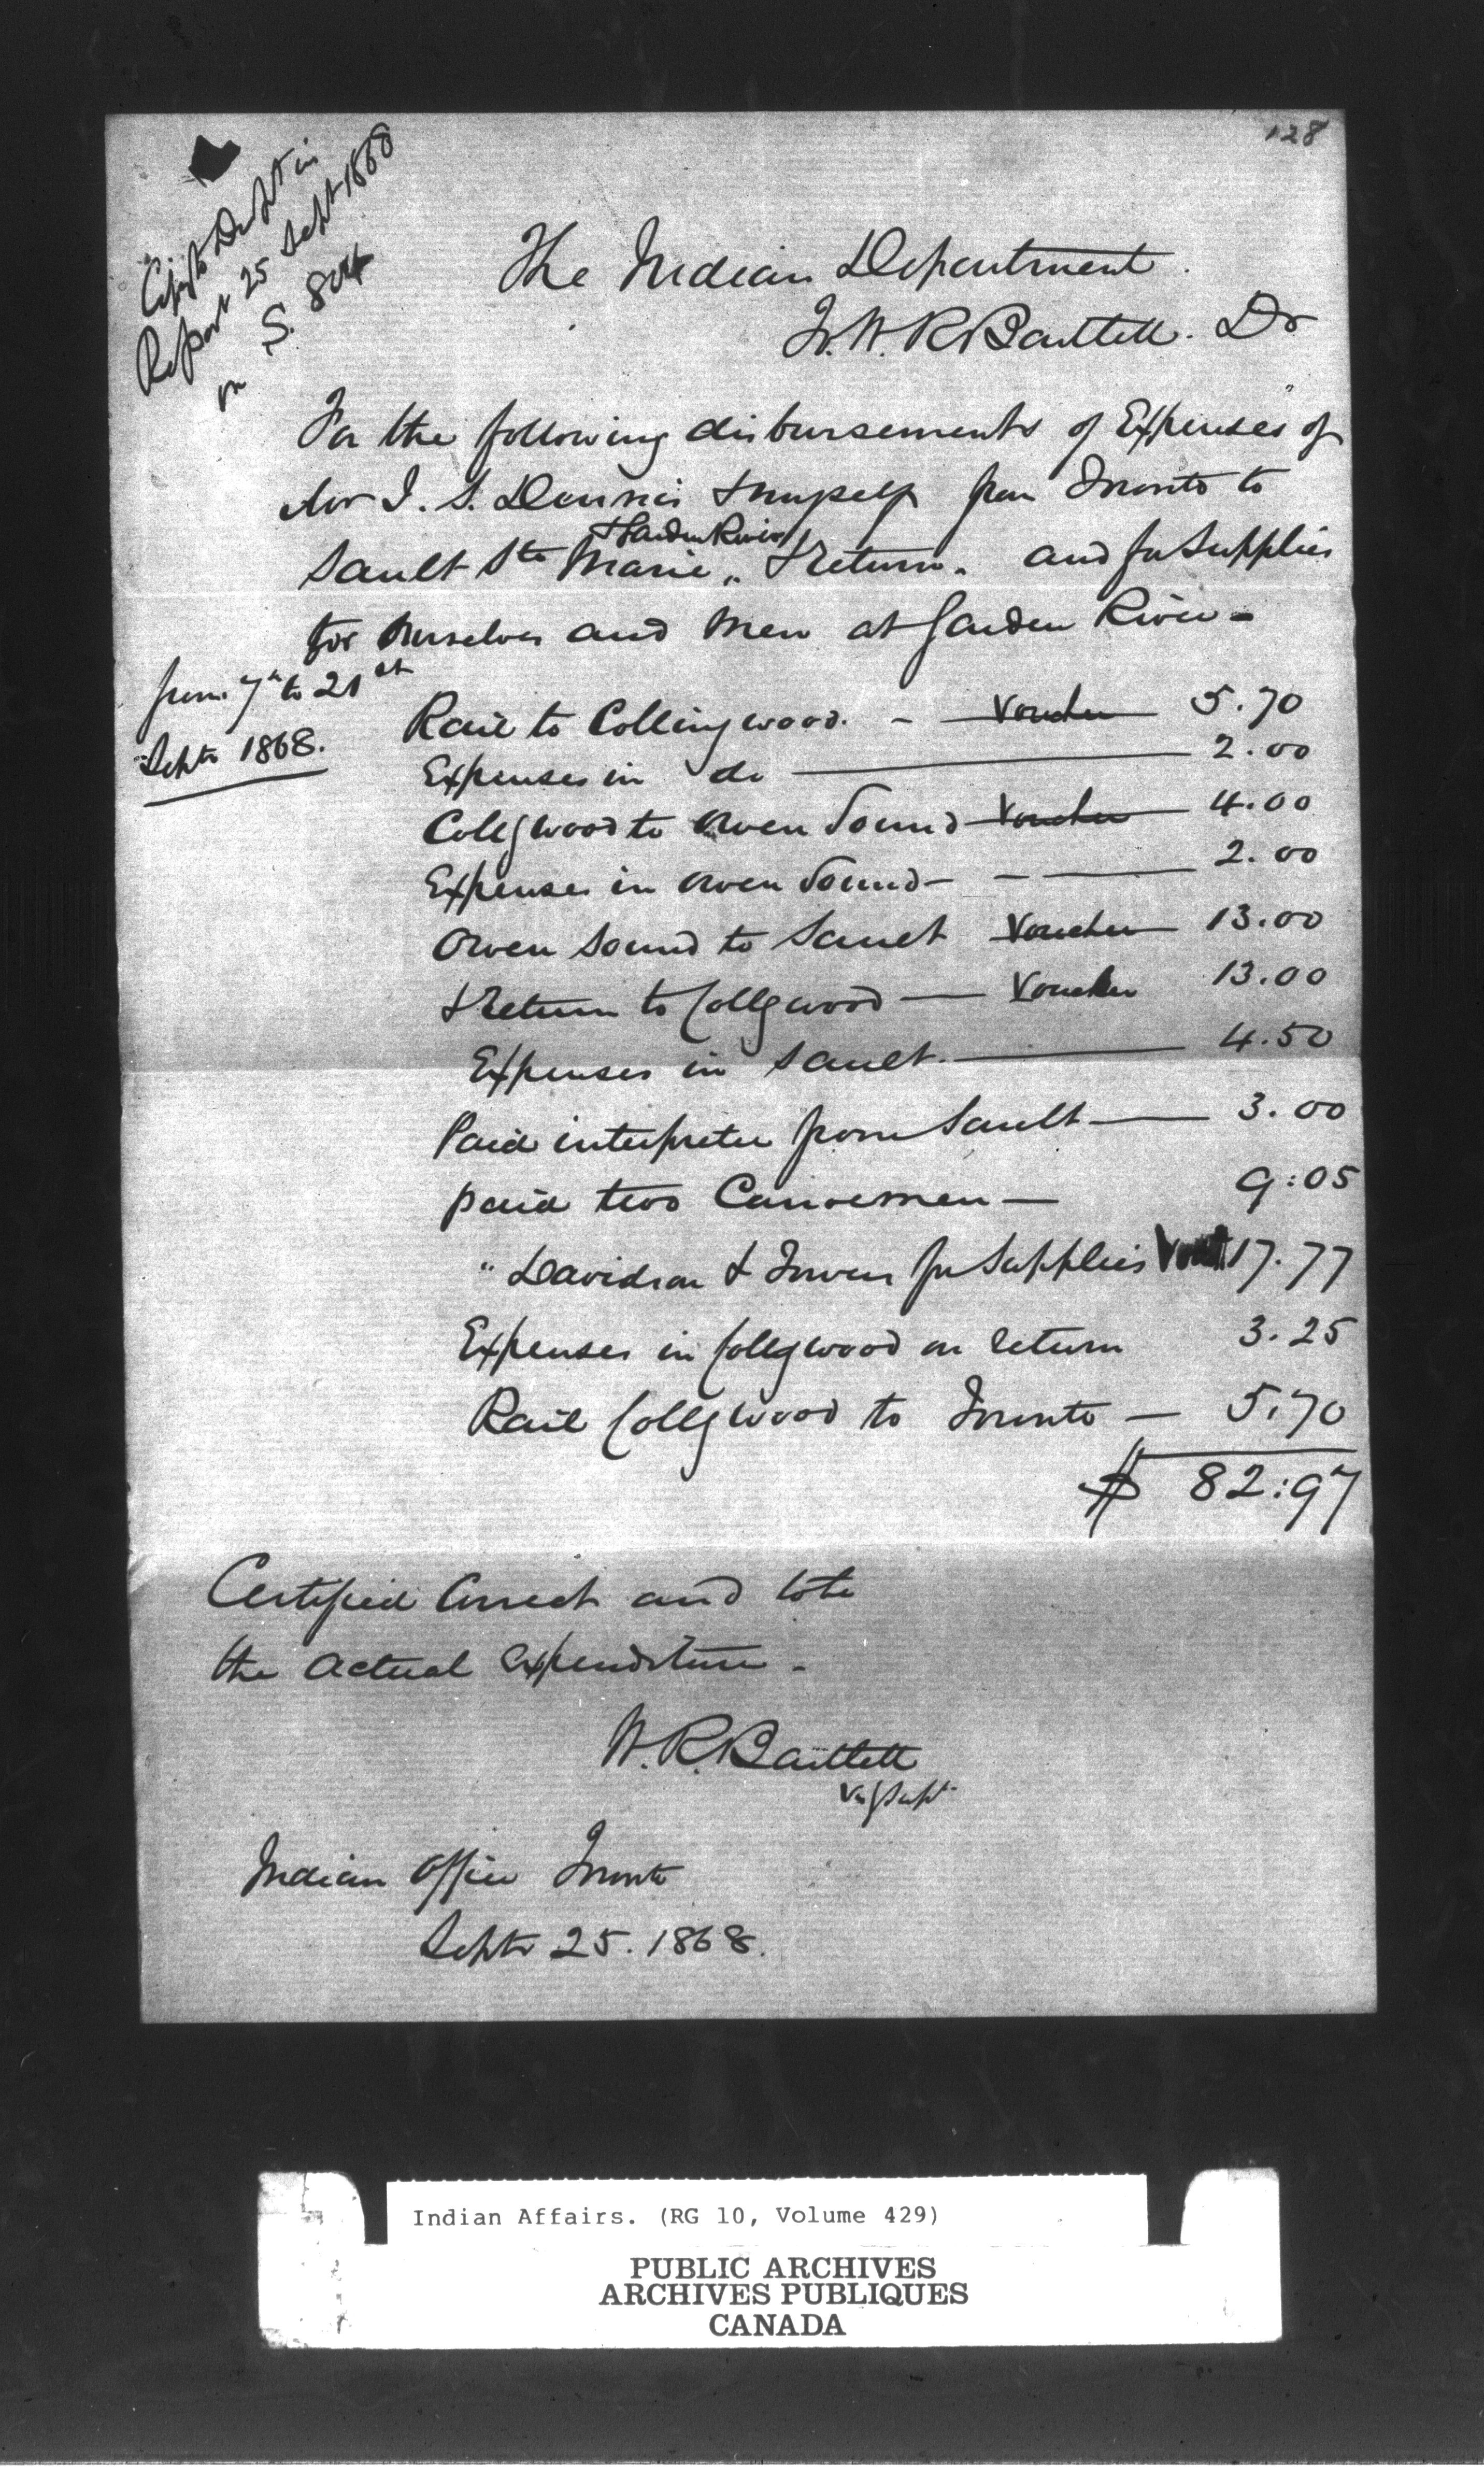 128
Copy to Dept in
Report 25 Sept 1868
on S. 804
The Indian Department.
To. W. R Bartlett. Dr
For the following disbursements of Expenses of
Mr J. S. Dennis & myself from Toronto to
& Garden River
Sault Ste Marie „ & return. and for Supplies
for ourselves and Men at Garden River -
from 7th to 21st
Septr 1868.
Rail to Collingwood. - Voucher 5.70
Expenses in do 2.00
Collgwood to Owen Sound Voucher 4.00
Expenses in Owen Sound - - 2.00
Owen Sound to Sault Voucher 13.00
& Return to Collgwood — Voucher 13.00
Expenses in Sault. 4.50
Paid interpreter from Sault — 3.00
paid two Canoemen — 9:05
" Davidson & for Supplies 17.77
Expenses in Collgwood on return 3.25
Rail Collgwood to Toronto — 5.70
$ 82:97
Certified Correct and to be
the actual expenditure -
W. R. Bartlett
Indian Office Toronto
Septr 25. 1868.
Indian Affairs. (RG 10, Volume 429)
PUBLIC ARCHIVES
ARCHIVES PUBLIQUES
CANADA